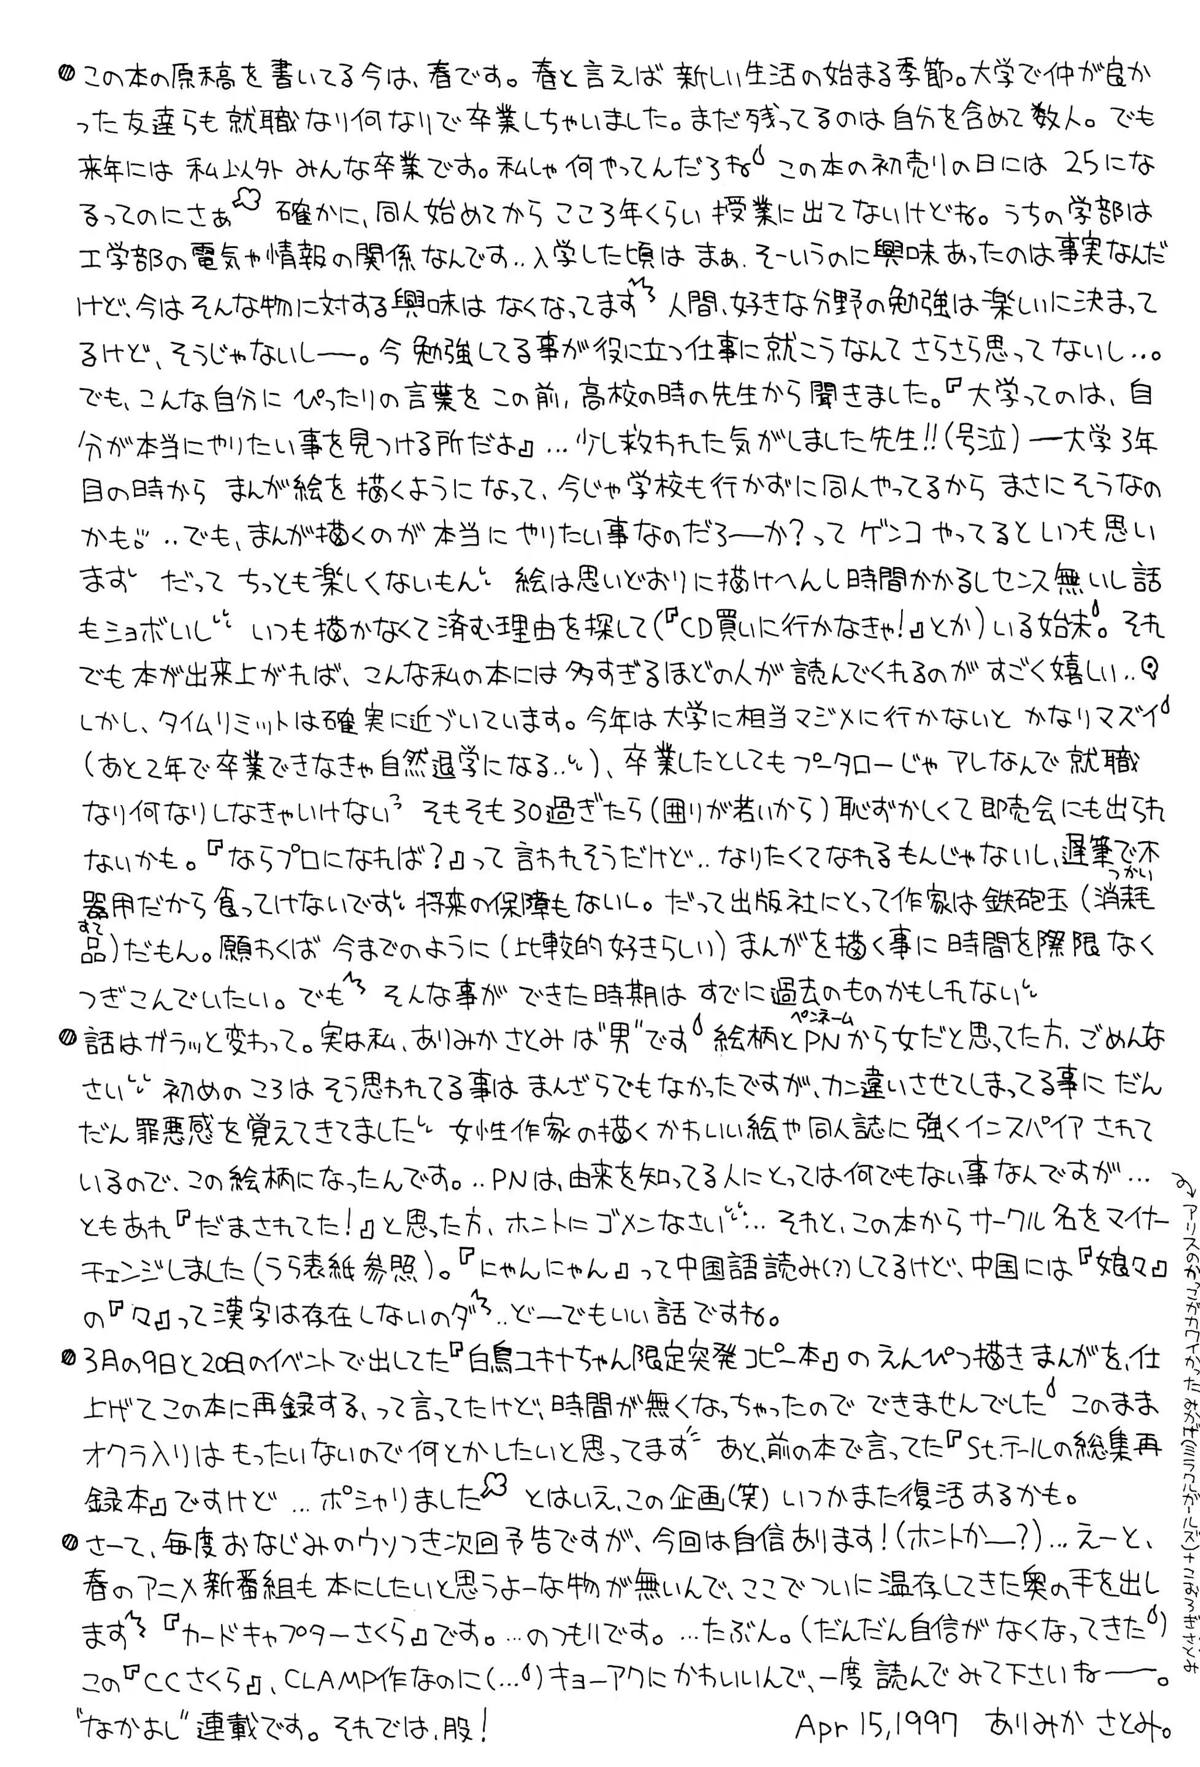 この本の原稿を書いてる今は、春です。春と言えば新しい生活の始まる季節。大学で仲が良か
った友達らも就職なり何なりで卒業しちゃいました。まだ残ってるのは自分を含めて数人。でも
来年には私以外みんな卒業です。私しゃ何やってんだろね この本の初売りの日には25にな
るってのにさぁ 確かに、同人始めてからここ3年くらい授業に出てないけどね。うちの学部は
工学部の電気や情報の関係なんです‥入学した頃はまぁ、そーいうのに興味あったのは事実なんだ
けど、今はそんな物に対する興味はなくなってます 人間、好きな分野の勉強は楽しいに決まって
るけど、そうじゃないしー。今勉強してる事が役に立つ仕事に就こうなんてさらさら思ってないし…。
でも、こんな自分にぴったりの言葉をこの前、高校の時の先生から聞きました。『大学ってのは、自
分が本当にやりたい事を見つける所だよ』…少し救われた気がしました先生!!(号泣)ー大学3年
目の時からまんが絵を描くようになって、今じゃ学校も行かずに同人やってるからまさにそうなの
かも。‥でも、まんが描くのが本当にやりたい事なのだろーか?ってゲンコやってるといつも思い
ます だってちっとも楽しくないもん 絵は思いどおりに描けへんし時間かかるしセンス無いし話
もショボいし いつも描かなくて済む理由を探して(『CD買いに行かなきゃ!』とか)いる始末。それ
でも本が出来上がれば、こんな私の本には多すぎるほどの人が読んでくれるのがすごく嬉しい‥
しかし、タイムリミットは確実に近づいています。今年は大学に相当マジメに行かないとかなりマズイ
(あと2年で卒業できなきゃ自然退学になる‥)、卒業したとしてもプータローじゃアレなんで就職
なり何なりしなきゃいけない そもそも30過ぎたら(囲りが若いから)恥ずかしくて即売会にも出られ
ないかも。『ならプロになれば?』って言われそうだけど‥なりたくてなれるもんじゃないし、遅筆で不
器用だから食ってけないです 将来の保障もないし。だって出版社にとって作家は鉄砲玉(消耗
つかい
すて
品)だもん。願わくば今までのように(比較的好きらしい)まんがを描く事に時間を際限なく
つぎこんでいたい。でも そんな事ができた時期はすでに過去のものかもしれない
話はガラッと変わって。実は私、ありみかさとみは“男”です 絵柄とPNから女だと思ってた方、ごめんな
ペンネーム
さい 初めのころはそう思われてる事はまんざらでもなかったですが、カン違いさせてしまってる事にだん
だん罪悪感を覚えてきてました 女性作家の描くかわいい絵や同人誌に強くインスパイアされて
いるので、この絵柄になったんです。‥PNは、由来を知ってる人にとっては何でもない事なんですが…
ともあれ『だまされてた!』と思った方、ホントにゴメンなさい… それと、この本からサークル名をマイナー
チェンジしました(うら表紙参照)。『にゃんにゃん』って中国語読み(?)してるけど、中国には『娘々』
の『々』って漢字は存在しないのダ‥どーでもいい話ですね。
3月の9日と20日のイベントで出してた『白鳥ユキナちゃん限定突発コピー本』のえんぴつ描きまんがを、仕
上げてこの本に再録する、って言ってたけど、時間が無くなっちゃったのでできませんでした このまま
オクラ入りはもったいないので何とかしたいと思ってます あと、前の本で言ってた『St.テールの総集再
録本』ですけど…ポシャりました とはいえ、この企画(笑)いつかまた復活するかも。
さーて、毎度おなじみのウソつき次回予告ですが、今回は自信あります!(ホントかー?)…えーと、
春のアニメ新番組も本にしたいと思うよーな物が無いんで、ここでついに温存してきた奥の手を出し
ます 『カードキャプターさくら』です。…のつもりです。…たぶん。(だんだん自信がなくなってきた)
この『CCさくら』、CLAMP作なのに(…)キョーアクにかわいいんで、一度読んでみて下さいねー。
“なかよし”連載です。それでは、股!
Apr 15,1997 ありみかさとみ。